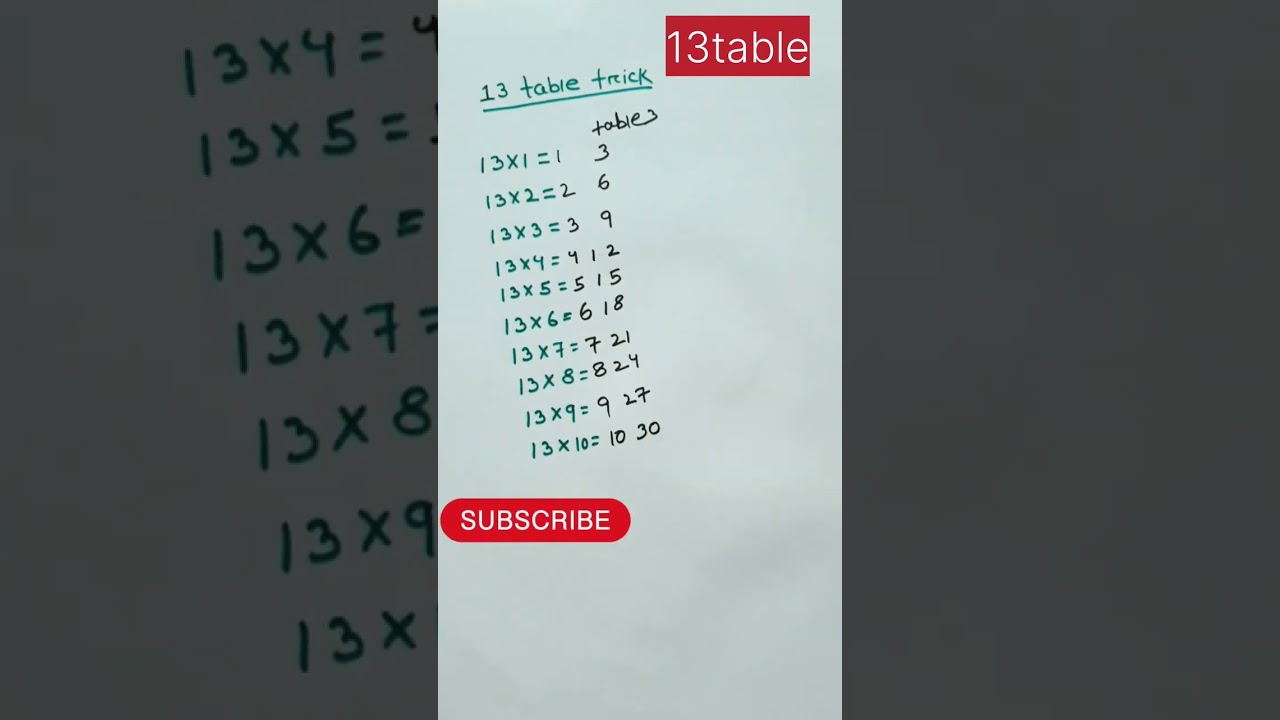 13table
13 table trick
table3
13×1=1 3
13×2=2 6
13×3=3 9
13×4=4 1 2
13×5=5 1 5
13×6=6 18
13×7=7 21
13×8=8 24
13×9=9 27
13×10=10 30
SUBSCRIBE
13×4=4
13×5=
13×6=
13×7=
13×8
13×9
13×